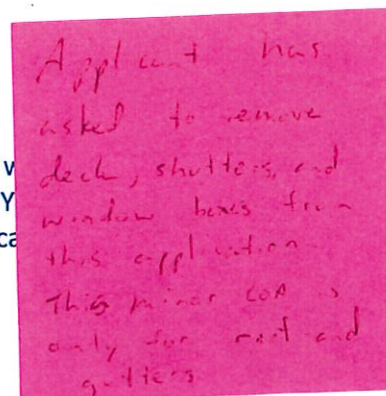 Applicant has
asked to remove
deck, shutters, and
window boxes from
this application.
This minor COA is
only for roof and
gutters
w
Y
ca